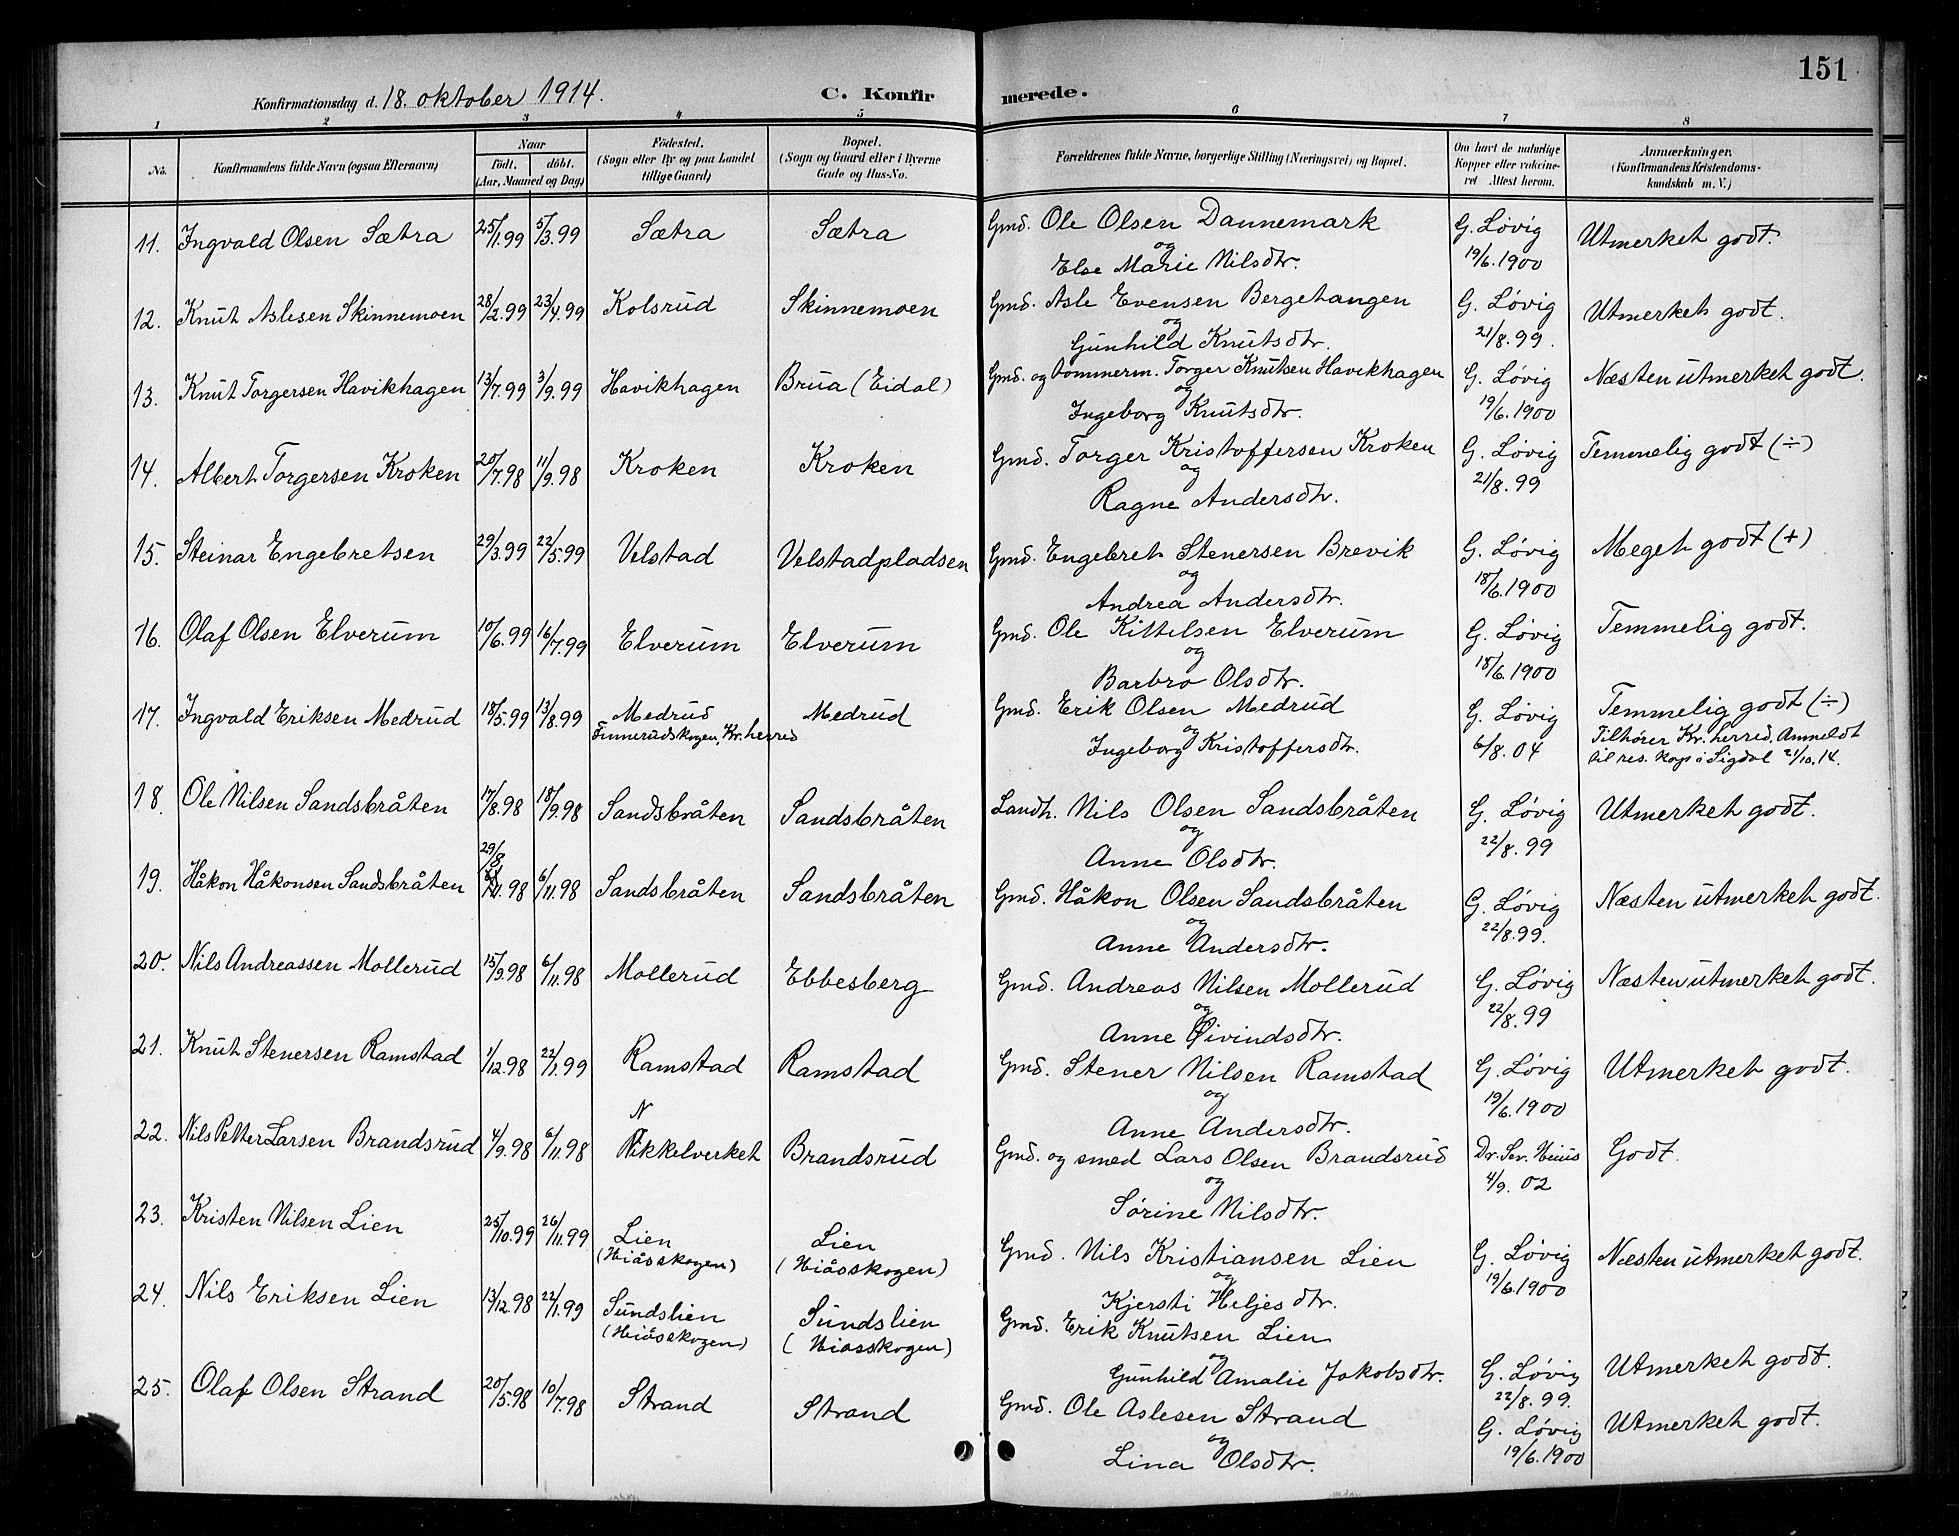 151
Konfirmationsdag d. 18. oktober 1914.
C. Konfirmerede.
1 2 3 4 5 6 7 8
No. Konfirmandens fulde Navn (ogsaa Efternavn) Naar födt. döbt. (Aar, Maaned og Dag) Födested. (Sogn eller By og paa Landet tillige Gaard) Bopæl. (Sogn og Gaard eller i Byerne Gade og Hus-No. Forældrenes fulde Navne, borgerlige Stilling (Næringsvei) og Bopæl. Om havt de naturlige Kopper eller vaccineret Attest herom. Anmærkninger. (Konfirmandens Kristendomskundskab m. V.)
11. Ingvald Olsen Sætra 25/1.99 5/3.99 Sætra Sætra Gmd. Ole Olsen Dannemark G. Løvig Utmerket godt.
og
Else Marie Nilsdtr. 19/6.1900
12. Knut Aslesen Skinnemoen 28/2.99 23/4.99 Kolsrud Skinnemoen Gmd. Asle Evensen Bergehangen G. Løvig Utmerket godt.
og
Gunhild Knutsdtr. 21/8.99.
13. Knut Torgersen Havikhagen 13/7.99 3/9.99 Havikhagen Brua (Eidal) Gmd. og tømmerm. Torger Knutsen Havikhagen G. Løvig Næsten utmerket godt.
og
Ingeborg Knutsdtr. 19/6.1900
14. Albert Torgersen Kroken 20/7.98 11/9.98 Kroken Kroken Gmd. Torger Kristoffersen Kroken G. Løvig Temmelig godt (÷)
og
Ragne Andersdtr. 21/8.99
15. Steinar Engebretsen 29/3.99 22/5.99 Velstad Velstadpladsen Gmd. Engebret Stenersen Brevik G. Løvig Meget godt (+)
og
Andrea Andersdtr. 18/6.1900
16. Olaf Olsen Elverum 10/6.99 16/7.99 Elverum Elverum Gmd. Ole Kittelsen Elverum G. Løvig Temmelig godt.
og
Barbro Olsdtr. 18/6.1900
17. Ingvald Eriksen Medrud 18/5.99 13/8.99 Medrud Medrud Gmd. Erik Olsen Medrud G. Løvig Temmelig godt (÷)
Finnerudskogen, Kr. herred og Tilhører Kr. herred. Anmeldt
Ingeborg Kristoffersdtr. 6/8.04 til res. kap i Sigdal 21/10.14.
18. Ole Nilsen Sandsbråten 17/8.98 18/9.98 Sandsbråten Sandsbråten Landh. Nils Olsen Sandsbråten G. Løvig Utmerket godt.
og
Anne Olsdtr. 22/8.99
29/8
19. Håkon Håkonsen Sandsbråten .98 6/11.98 Sandsbråten Sandsbråten Gmd. Håkon Olsen Sandsbråten G. Løvig Næsten utmerket godt.
og
Anne Andersdtr. 22/8.99.
20. Nils Andreassen Mollerud 15/9.98 6/11.98 Mollerud Ebbesberg Gmd. Andreas Nilsen Mollerud G. Løvig Næsten utmerket godt.
og
Anne Øivindsdtr. 22/8.99
21. Knut Stenersen Ramstad 1/12.98 22/1.99 Ramstad Ramstad Gmd. Stener Nilsen Ramstad G. Løvig Utmerket godt.
og
Anne Andersdtr. 19/6.1900
N
22. Nils Petter Larsen Brandsrud 4/9.98 6/11.98 Nikkelverket Brandsrud Gmd. og smed Lars Olsen Brandsrud Dr. Sev. Godt.
og
Sørine Nilsdtr. 4/9.02
23. Kristen Nilsen Lien 25/10.99 26/11.99 Lien Lien Gmd. Nils Kristiansen Lien G. Løvig Næsten utmerket godt.
(Hiåsskogen) (Hiåsskogen) og
Kjersti Heljesdtr. 19/6.1900
24. Nils Eriksen Lien 13/12.98 22/1.99 Sundslien Sundslien Gmd. Erik Knutsen Lien
(Hiåsskogen) (Hiasskogen) og
Gunhild Amalie Jakobsdtr. G. Løvig Utmerket godt.
22/8.99.
25. Olaf Olsen Strand 20/5.98 10/7.98 Strand Strand Gmd. Ole Aslesen Strand G. Løvig Utmerket godt.
og
Lina Olsdtr. 19/6.1900